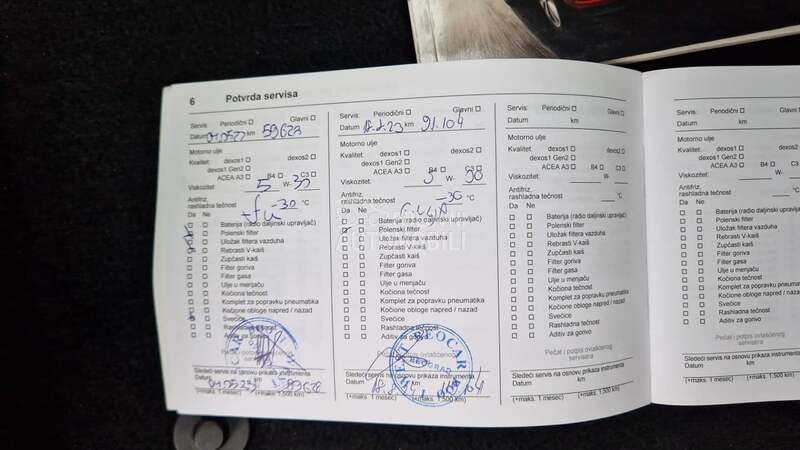 6 Potvrda servisa
Servis: Periodični Glavni
Datum km 59628
Motorno ulje
Kvalitet: dexos1 dexos2
dexos1 Gen2
ACEA A3 B4 C3
Viskozitet: 5 W- 30
Antifriz, rashladna tečnost -30 °C
Da Ne
Baterija (radio daljinski upravljač)
Polenski filter
Uložak filtera vazduha
Rebrasti V-kaiš
Zupčasti kaiš
Filter goriva
Filter gasa
Ulje u menjaču
Kočiona tečnost
Komplet za popravku pneumatika
Kočione obloge napred / nazad
Svećice
Rashladna tečnost
Aditiv za gorivo
Pečat i potpis ovlašćenog
servisera
Sledeći servis na osnovu prikaza instrumenta
Datum km
(+maks. 1 mesec) (+maks. 1,500 km)
Servis: Periodični Glavni
Datum km 91.104
Motorno ulje
Kvalitet: dexos1 dexos2
dexos1 Gen2
ACEA A3 B4 C3
Viskozitet: W-
Antifriz, rashladna tečnost -30 °C
Da Ne
Baterija (radio daljinski upravljač)
Polenski filter
Uložak filtera vazduha
Rebrasti V-kaiš
Zupčasti kaiš
Filter goriva
Filter gasa
Ulje u menjaču
Kočiona tečnost
Komplet za popravku pneumatika
Kočione obloge napred / nazad
Svećice
Rashladna tečnost
Aditiv za gorivo
Pečat i potpis ovlašćenog
BEOCAR
BEOGRAD
Sledeći servis na osnovu prikaza instrumenta
Datum km
(+maks. 1 mesec) (+maks. 1,500 km)
Servis: Periodični Glavni
Datum km
Motorno ulje
Kvalitet: dexos1 dexos2
dexos1 Gen2
ACEA A3 B4 C3
Viskozitet: W-
Antifriz, rashladna tečnost °C
Da Ne
Baterija (radio daljinski upravljač)
Polenski filter
Uložak filtera vazduha
Rebrasti V-kaiš
Zupčasti kaiš
Filter goriva
Filter gasa
Ulje u menjaču
Kočiona tečnost
Komplet za popravku pneumatika
Kočione obloge napred / nazad
Svećice
Rashladna tečnost
Aditiv za gorivo
Pečat i potpis ovlašćenog
servisera
Sledeći servis na osnovu prikaza instrumenta
Datum km
(+maks. 1 mesec) (+maks. 1,500 km)
Servis: Periodični
Datum
Motorno ulje
Kvalitet: dexos1
dexos1
ACEA
Viskozitet:
Antifriz,
rashladna tečnost
Da Ne
Baterija (radio
Polenski filter
Uložak filtera
Rebrasti V-kaiš
Zupčasti kaiš
Filter goriva
Filter gasa
Ulje u menjaču
Kočiona tečnost
Komplet za
Kočione obloge
Svećice
Rashladna
Aditiv za gorivo
Pečat
Sledeći servis na osnovu
Datum
(+maks. 1 mesec)